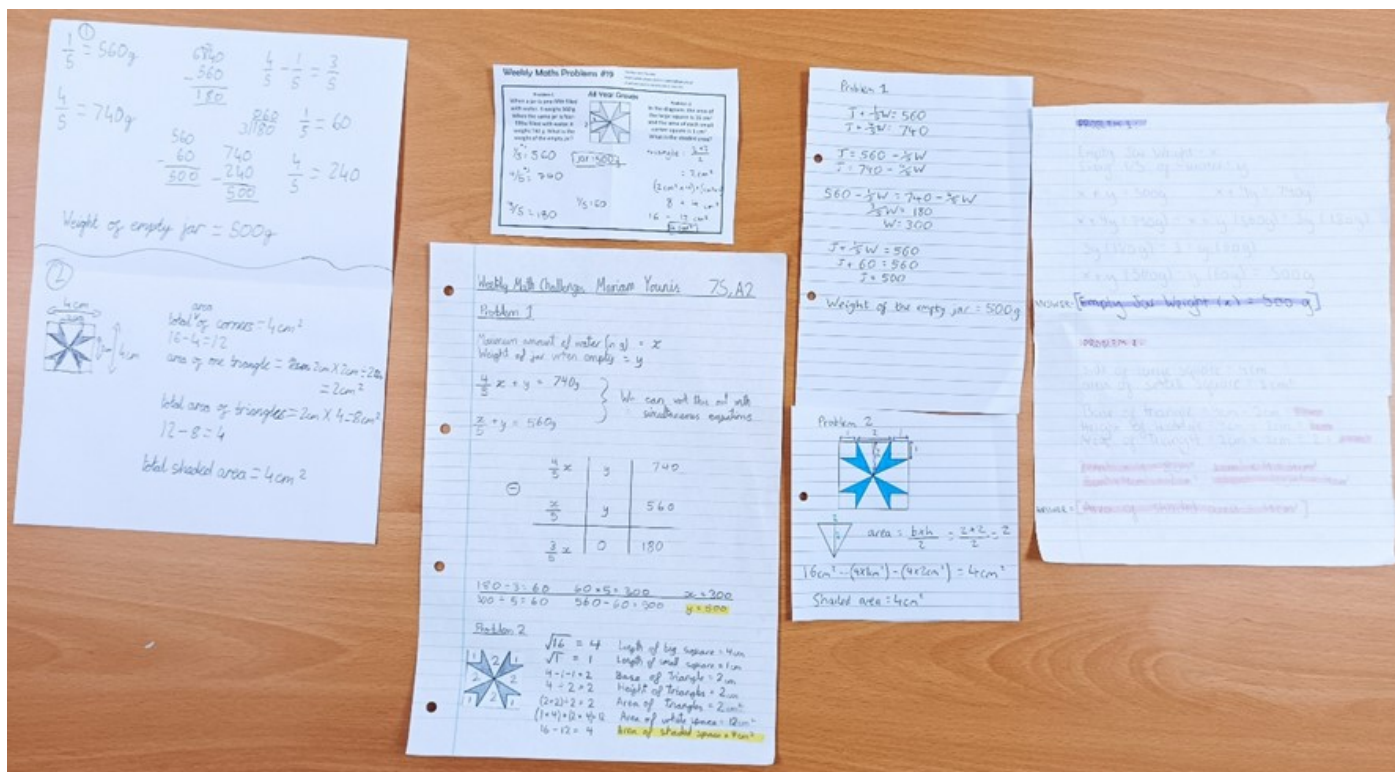 ①
1/5 = 560g
6840
- 560
180
4/5 - 1/5 = 3/5
4/5 = 740g
3|180
1/5 = 60
560
- 60
500
740
- 240
500
4/5 = 240
Weight of empty jar = 500g
②
4cm
4cm
area
total of corners = 4cm²
16-4=12
area of one triangle = 2cm X 2cm ÷ 2
= 2cm²
total area of triangles = 2cm X 4 = 8cm²
12 - 8 = 4
total shaded area = 4cm²
Weekly Maths Problems #19
All Year Groups
Problem 1
When a jar is one-fifth filled
with water, it weighs 560g.
When the same jar is four-
fifths filled with water, it
weighs 740 g. What is the
weight of the empty jar?
Problem 2
In the diagram, the area of
the large square is 16 cm²
and the area of each small
corner square is 1 cm².
What is the shaded area?
1/5 = 560
jar = 500g
4/5 = 740
3/5 = 180
1/5 = 60
triangle = 2×2/2
= 2cm²
8 + 4 cm²
16 - 12 cm²
Weekly Math Challenges Mariam Younis 7S, A2
Problem 1
Maximum amount of water (in g) = x
Weight of jar when empty = y
4/5 x + y = 740g
x/5 + y = 560g
We can work this out with
simultaneous equations
4/5 x y 740
⊖
x/5 y 560
3/5 x 0 180
180 ÷ 3 = 60 60 × 5 = 300 x = 300
300 ÷ 5 = 60 560 - 60 = 500 y = 500
Problem 2
1 2 1
2 2
1 2 1
√16 = 4 Length of big square = 4cm
√1 = 1 Length of small square = 1cm
4-1-1=2 Base of Triangle = 2cm
4 ÷ 2 = 2 Height of Triangles = 2cm
(2×2)÷2 = 2 Area of Triangles = 2cm²
(1×4)+(2×4)=12 Area of white space = 12cm²
16 - 12 = 4 Area of shaded space = 4cm²
Problem 1
J + 1/5W = 560
J + 4/5W = 740
J = 560 - 1/5W
J = 740 - 4/5W
560 - 1/5W = 740 - 4/5W
3/5W = 180
W = 300
J + 1/5W = 560
J + 60 = 560
J = 500
Weight of the empty jar = 500g
Problem 2
1 2 1
1
2
2
2
area = b×h/2 = 2×2/2 = 2
16cm² - (4×1cm²) - (4×2cm²) = 4cm²
Shaded area = 4cm²
PROBLEM 1:
Empty Jar Weight = x
x + y (560g) - y (60g) = 500g
ANSWER: [Empty Jar Weight (x) = 500 g]
PROBLEM 2:
ANSWER: [Area of shaded area = 4cm²]